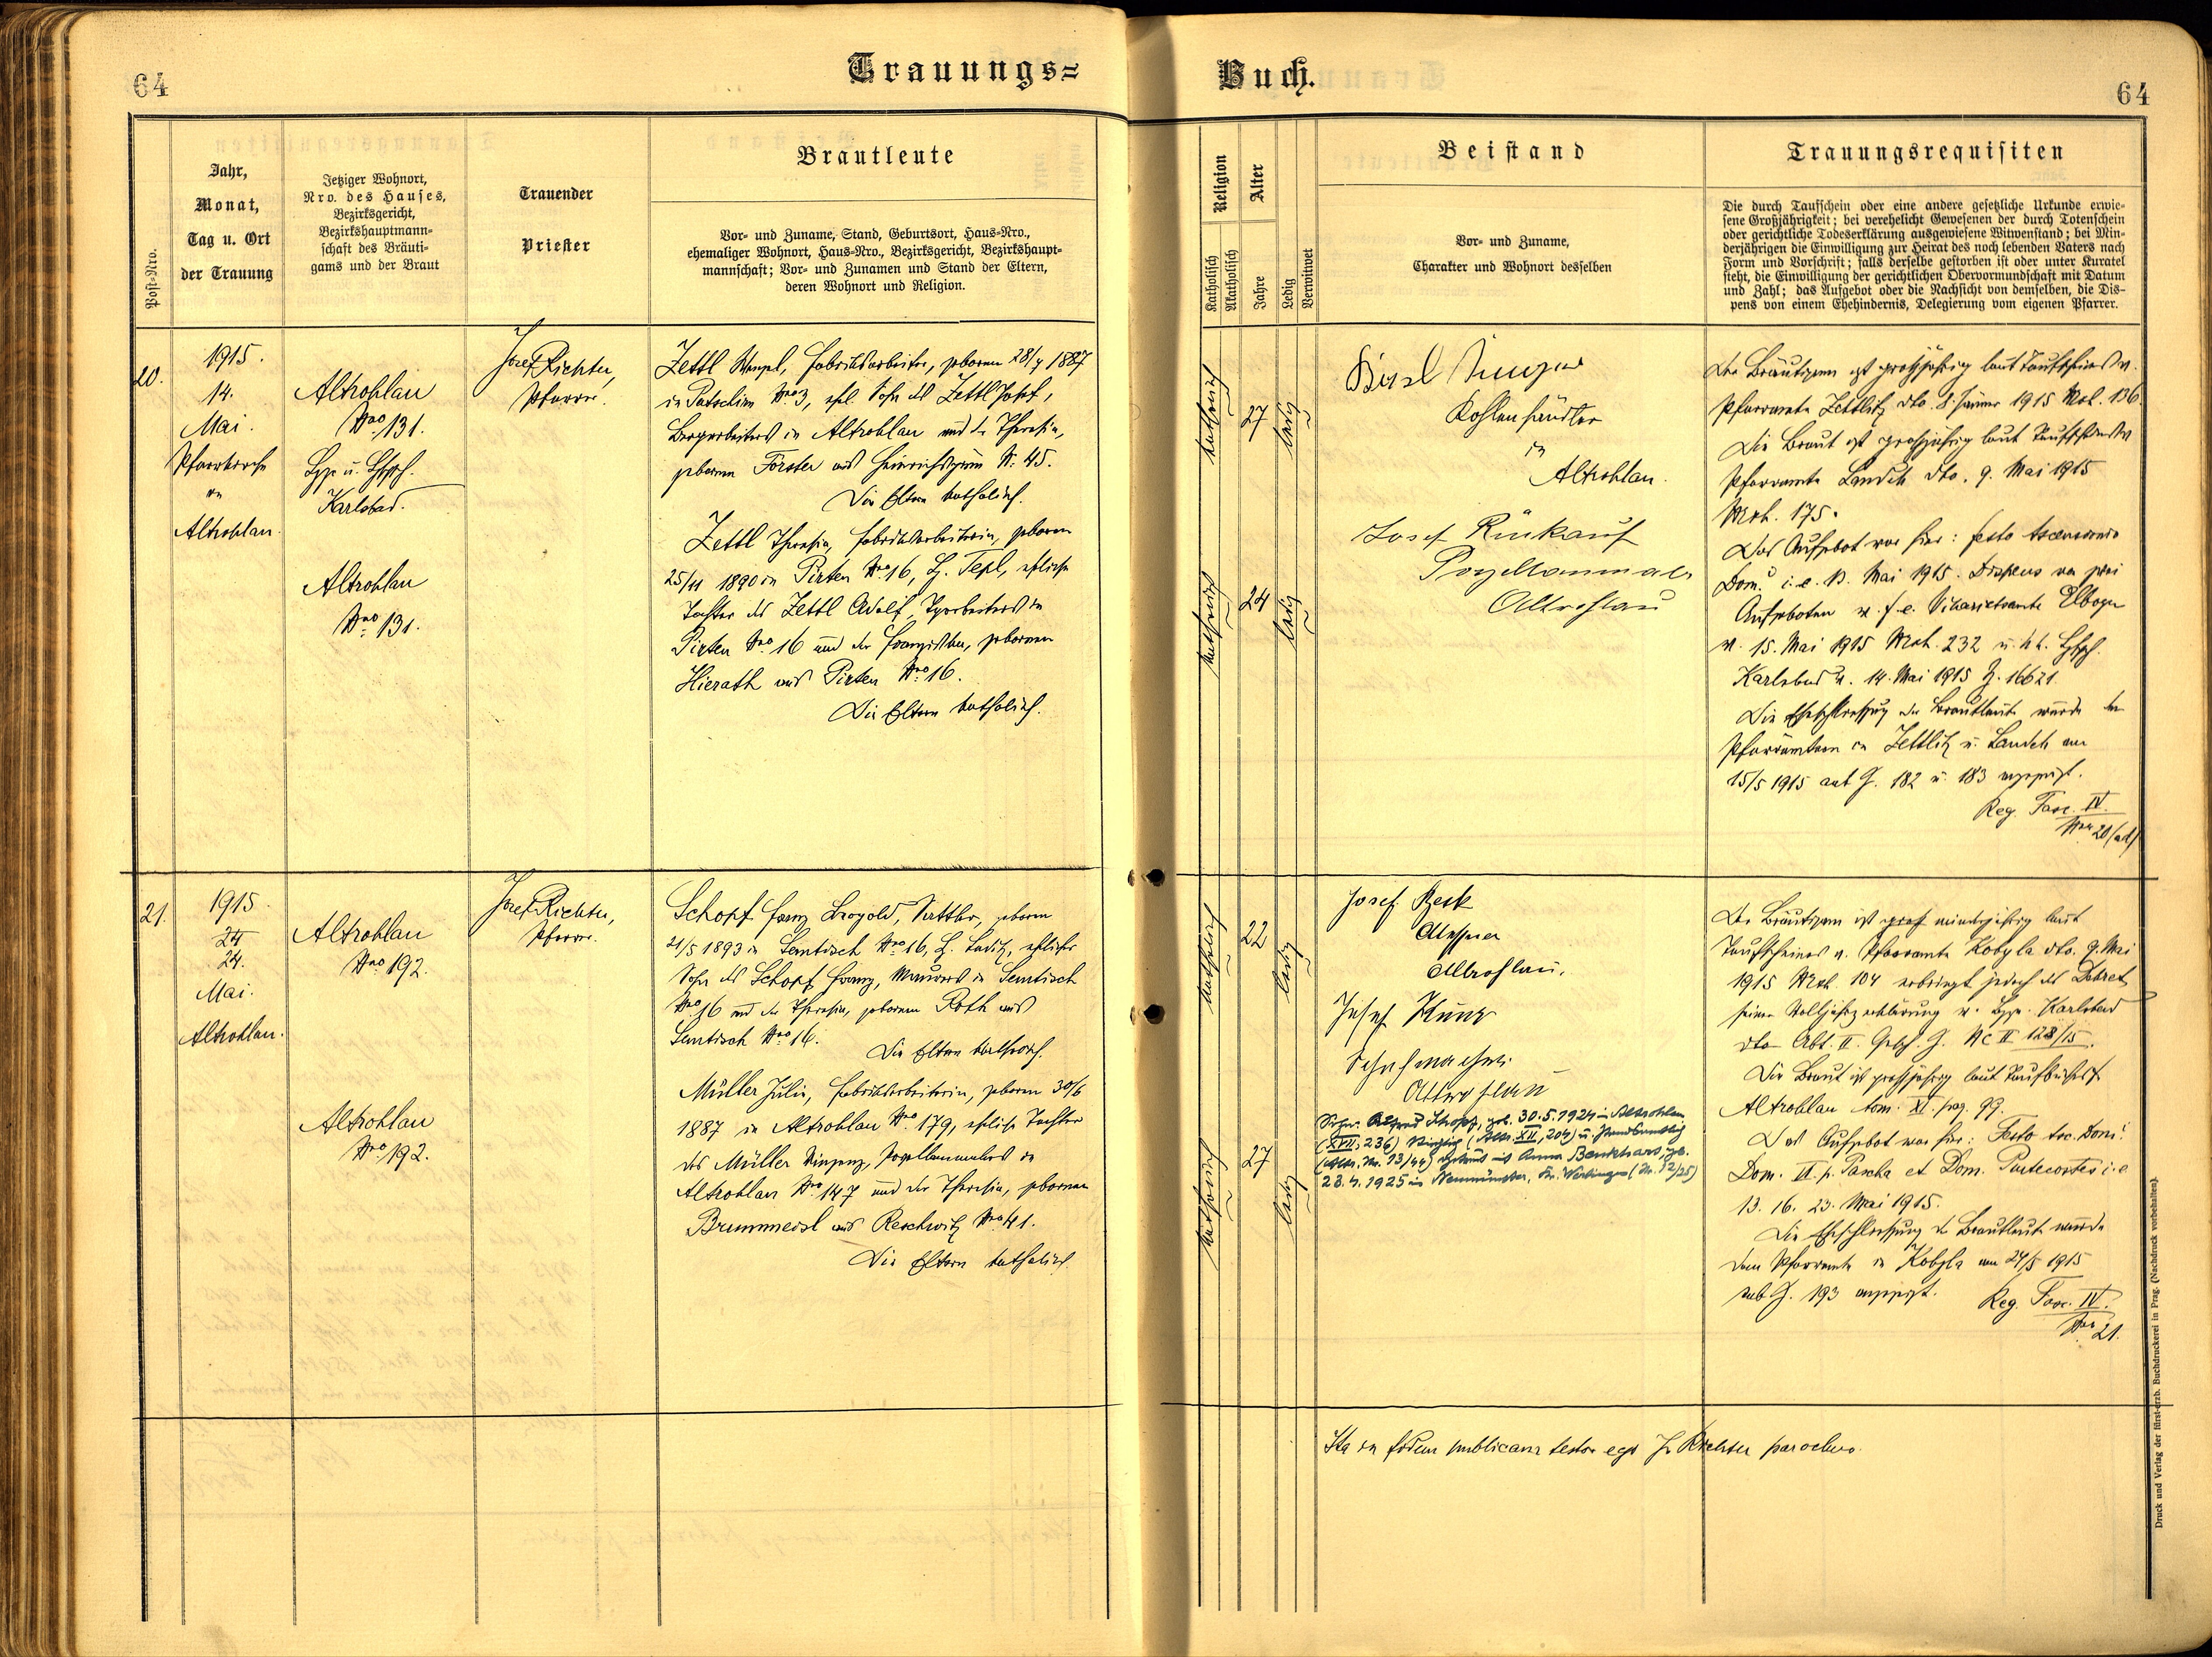 64
Trauungs=
Buch.
64
Post=Nro.
Jahr,
Monat,
Tag u. Ort
der Trauung
Jetziger Wohnort,
Nro. des Hauses,
Bezirksgericht,
Bezirkshauptmann=
schaft des Bräuti=
gams und der Braut
Trauender
Priester
Brautleute
Vor= und Zuname, Stand, Geburtsort, Haus=Nro.,
ehemaliger Wohnort, Haus=Nro., Bezirksgericht, Bezirkshaupt=
mannschaft; Vor= und Zunamen und Stand der Eltern,
deren Wohnort und Religion.
Religion
Katholisch
Akatholisch
Alter
Jahre
Ledig
Verwitwet
Beistand
Vor= und Zuname,
Charakter und Wohnort desselben
Trauungsrequisiten
Die durch Taufschein oder eine andere gesetzliche Urkunde erwie=
sene Großjährigkeit; bei verehelicht Gewesenen der durch Totenschein
oder gerichtliche Todeserklärung ausgewiesene Witwenstand; bei Min=
derjährigen die Einwilligung zur Heirat des noch lebenden Vaters nach
Form und Vorschrift; falls derselbe gestorben ist oder unter Kuratel
steht, die Einwilligung der gerichtlichen Obervormundschaft mit Datum
und Zahl; das Aufgebot oder die Nachsicht von demselben, die Dis=
pens von einem Ehehindernis, Delegierung vom eigenen Pfarrer.
20.
1915.
14.
Mai.
Pfarrkirche
in
Altrohlau.
Altrohlau
Nro 131.
Karlsbad.
Altrohlau
Nro 131.
Josef Richter,
Pfarrer.
Zettl Wenzl, Fabriksarbeiter, geboren 28/7 1887
in Putschirn Nro 3, ehel. Sohn des Zettl Josef,
Bergarbeiters in Altrohlau und der Theresia,
geboren Förster aus Heinrichsgrün N. 45.
Die Eltern katholisch.
Zettl Theresia, Fabriksarbeiterin, geboren
25/11 1890 in Pirten Nro 16, Bz. Tepl, eheliche
Tochter des Zettl Adolf, in
Pirten Nro 16 und der Franziska, geborenen
Hierath aus Pirten Nro 16.
Die Eltern katholisch.
katholisch
27
ledig
katholisch
24
ledig
Kohlenhändler
in
Altrohlau.
Josef Rinkauf
Porzellanmaler
Altrohlau
Der Bräutigam ist großjährig laut Taufscheines v.
Pfarramte Zettlitz dto. 8. Jänner 1915 Mat. 136.
Die Braut ist großjährig laut Taufscheines v.
Pfarramte Landek dto. 9. Mai 1915
Mat. 175.
Das Aufgebot war hier: festo Ascensionis
Dom. i. e. 13. Mai 1915. Dispens von zwei
Aufgeboten v. f. e. Vikariatsamte Elbogen
v. 15. Mai 1915 232 u.
Karlsbad v. 14. Mai 1915 Z. 16621.
Die Eheschließung der Brautleute wurde den
Pfarrämtern in Zettlitz u. Landek am
15/5 1915 sub Z. 182 u. 183 angezeigt.
Reg. Fasc. IV.
Nro 20
21.
1915.
24
24.
Mai.
Altrohlau.
Altrohlau
Nro 192.
Altrohlau
Nro 192.
Josef Richter,
Pfarrer.
Schopf Franz Leopold, Sattler, geboren
21/5 1893 in Semtisch Nro 16, eheliche
Sohn des Schopf Franz, Maurers in Semtisch
Nro 16 und der Theresia, geborenen Roth aus
Semtisch Nro 16.
Die Eltern katholisch.
Müller Julie, Fabriksarbeiterin, geboren 30/6
1887 in Altrohlau Nro 179, eheliche Tochter
des Müller Vinzenz, Porzellanmalers in
Altrohlau Nro 147 und der Theresia, geborenen
Brummeisl aus Reschwitz Nro 41.
Die Eltern katholisch.
katholisch
22
ledig
katholisch
27
ledig
Josef Beck
Altrohlau.
Josef Kunz
Schuhmacher
Altrohlau
Schopf, geb. 30.5.1924 in Altrohlau
(XVII, 236)
(Nr. 13/44) mit Anna
23.4.1925 in Neumünster, (Nr. 12/25)
Der Bräutigam ist groß minderjährig laut
Taufscheines v. Pfarramte Kobyla dto. 9. Mai
1915 104 erbringt jedoch das Dekret
seiner Volljährigerklärung v. Karlsbad
dto Abt. II. Gesch. Z. Nc II 128/15.
Die Braut ist großjährig laut Taufbuches
Altrohlau tom. XI. pag. 99.
Das Aufgebot war hier: Festo Asc. Dom.
Dom. VI. p. Pascha et Dom. Pentecostes i. e
13. 16. 23. Mai 1915.
Die Eheschließung der Brautleute wurde
dem Pfarramte in Kobyla am 24/5 1915
sub Z. 193 angezeigt.
Reg. Fasc. IV.
Nro 21.
Ita in fidem publicam testor ego J. Richter parochus.
Druck und Verlag der fürst-erzb. Buchdruckerei in Prag. (Nachdruck vorbehalten).